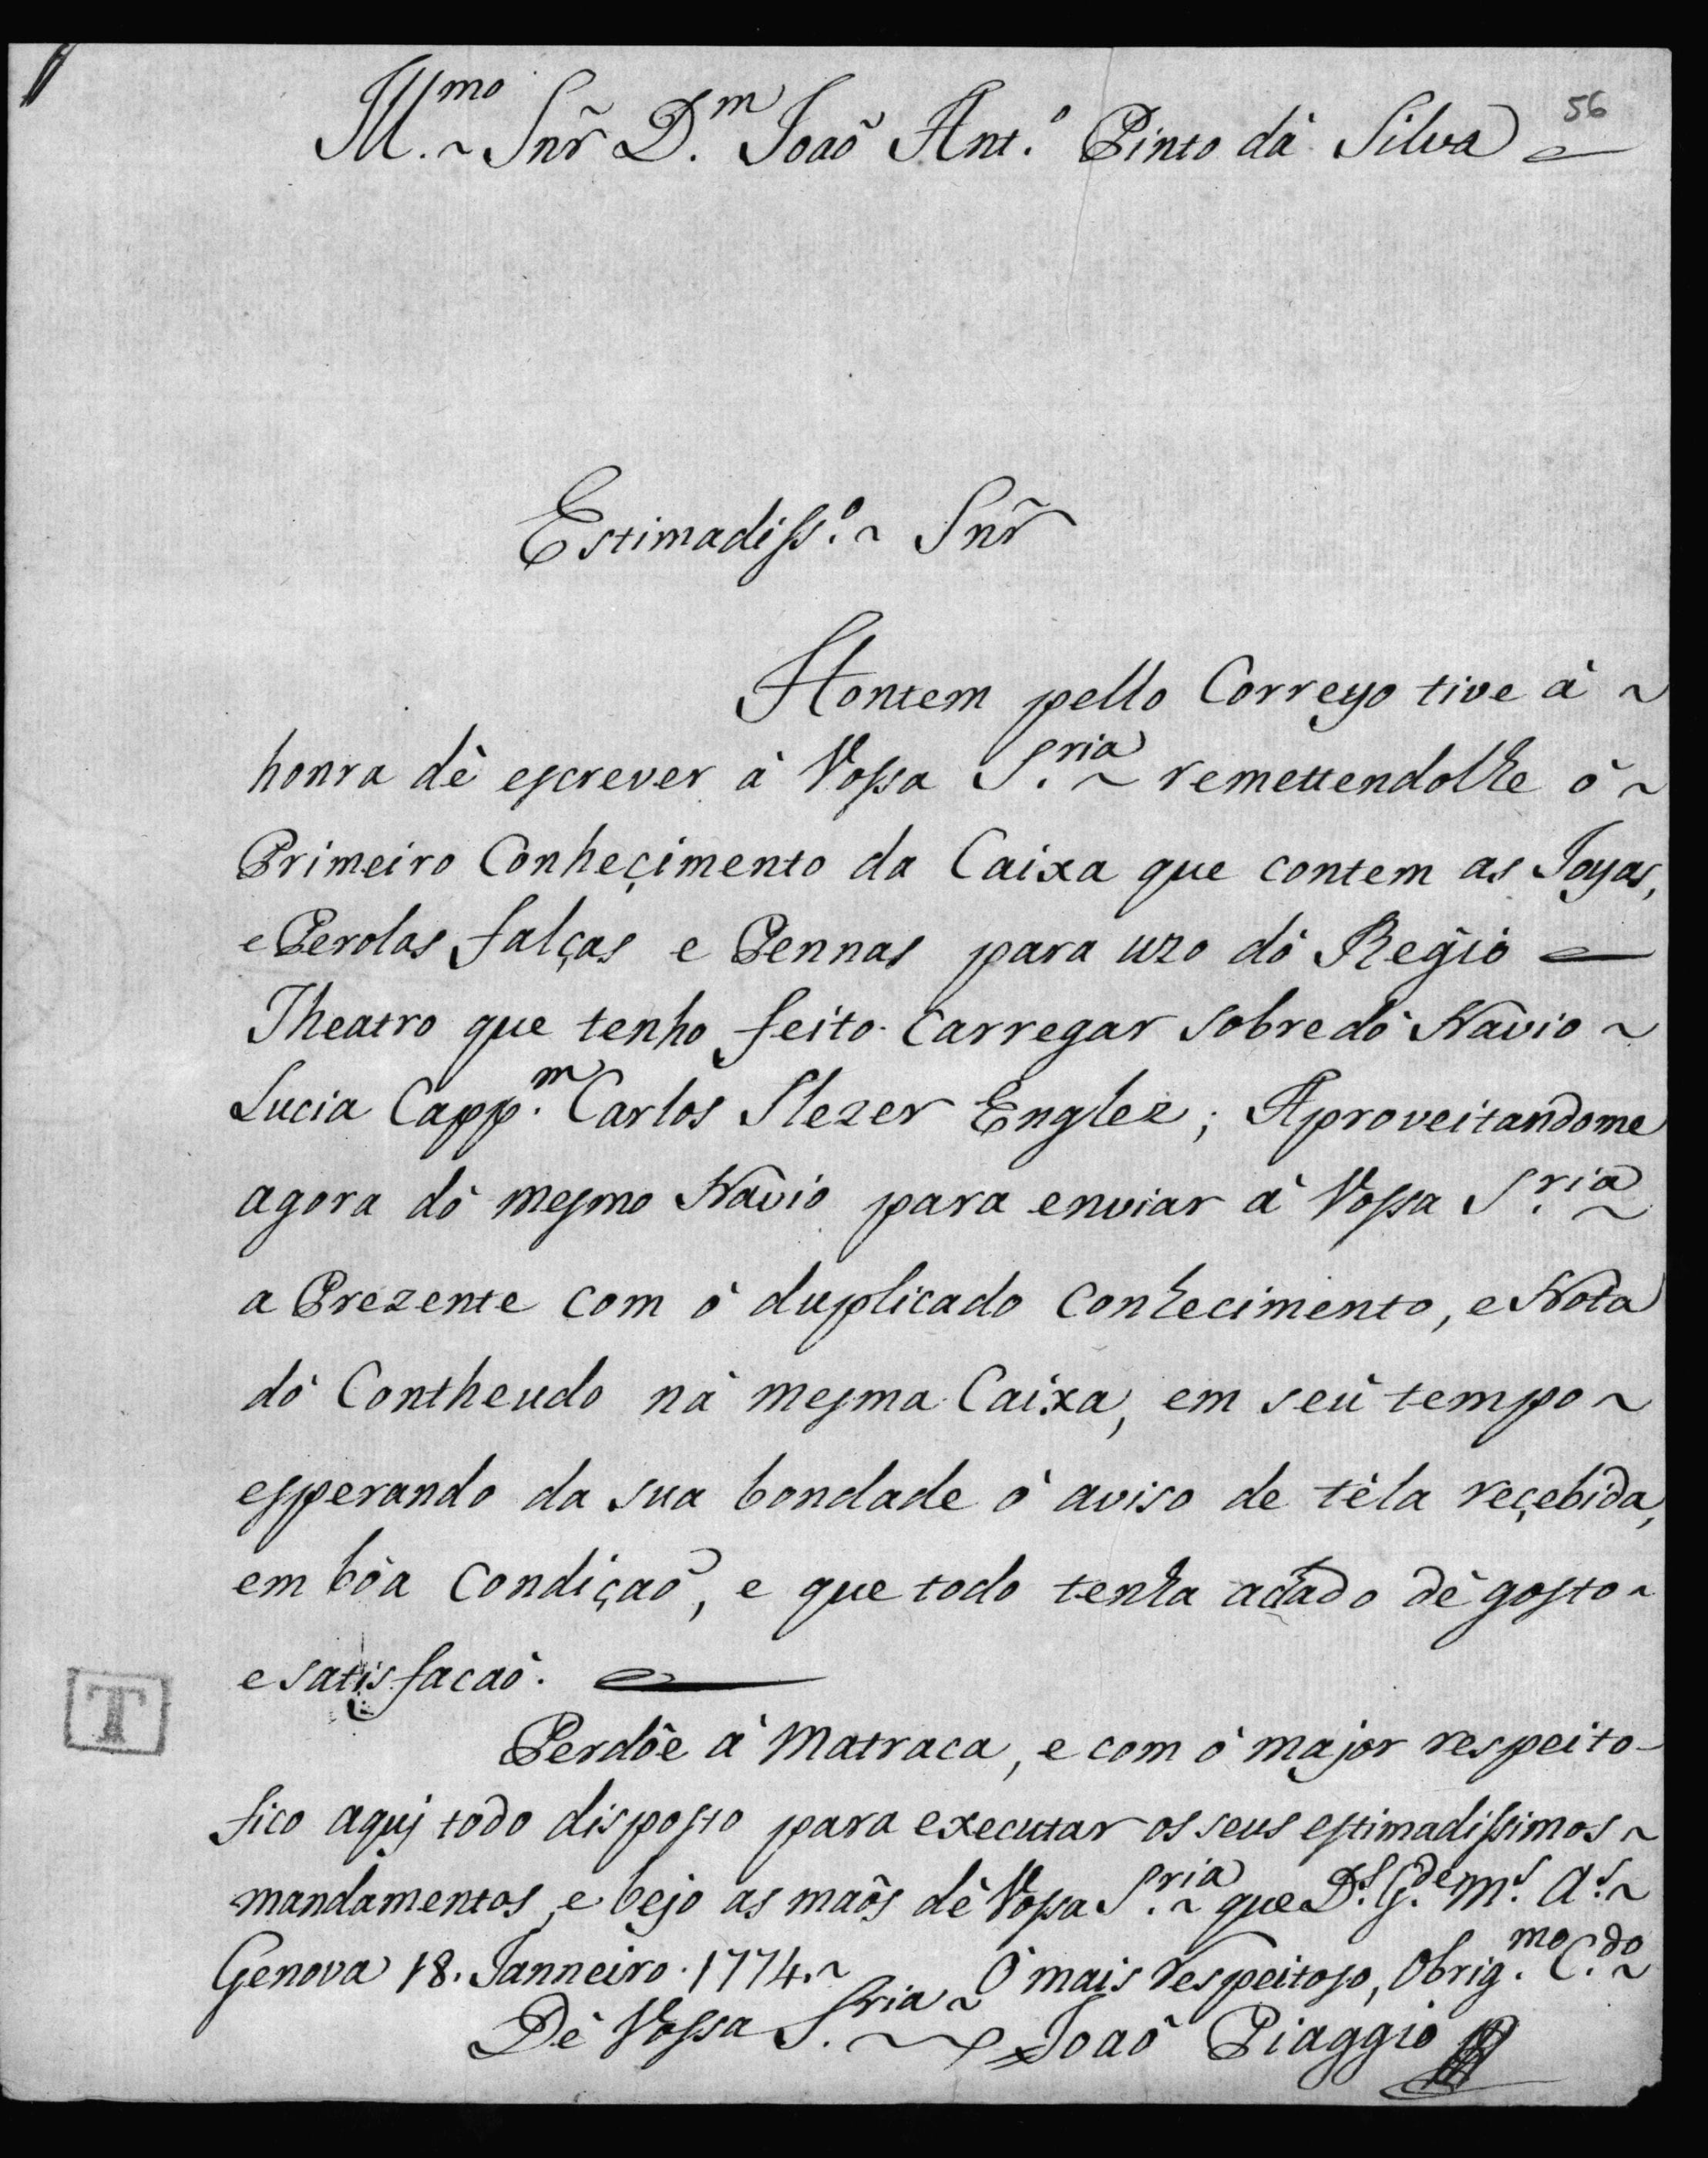 56
Ill.mo ~ Snr̃ D.m Joaõ Ant.o Pinto dà Silva
Estimadiss.o ~ Snr̃
Hontem pello Correyo tive à ~
honra dè escrever à Vossa S.ria ~ remettendolhe ò ~
Primeiro Conheçimento da Caixa que contem as Joyas,
e Perolas falças e Pennas para uzo dò Regio
Theatro que tenho feito Carregar sobre dò Navio ~
Lucia Capp.m Carlos Slezer Englez; Aproveitandome
agora dò mesmo Navio para enviar à Vossa S.ria ~
a Prezente com ò duplicado Conhecimento, e Nota
dò Contheudo nà mesma Caixa, em seù tempo ~
esperando da sua bondade ò aviso de tèla reçebida,
em bòa Condiçaõ, e que todo tenha actado dè gosto ~
e satisfacaò.
T
Perdòe à Matraca, e com ò major respeito
fico aquj todo disposto para executar os seus estimadissimos ~
mandamentos, e bejo as maõs dè Vossa S.ria ~ que D.s G.de m.s A.s ~
Genova 18. Janneiro. 1774. ~ O mais Respeitoso, Obrig.mo C.do ~
Dè Vossa S.ria ~ Joaõ Piaggio